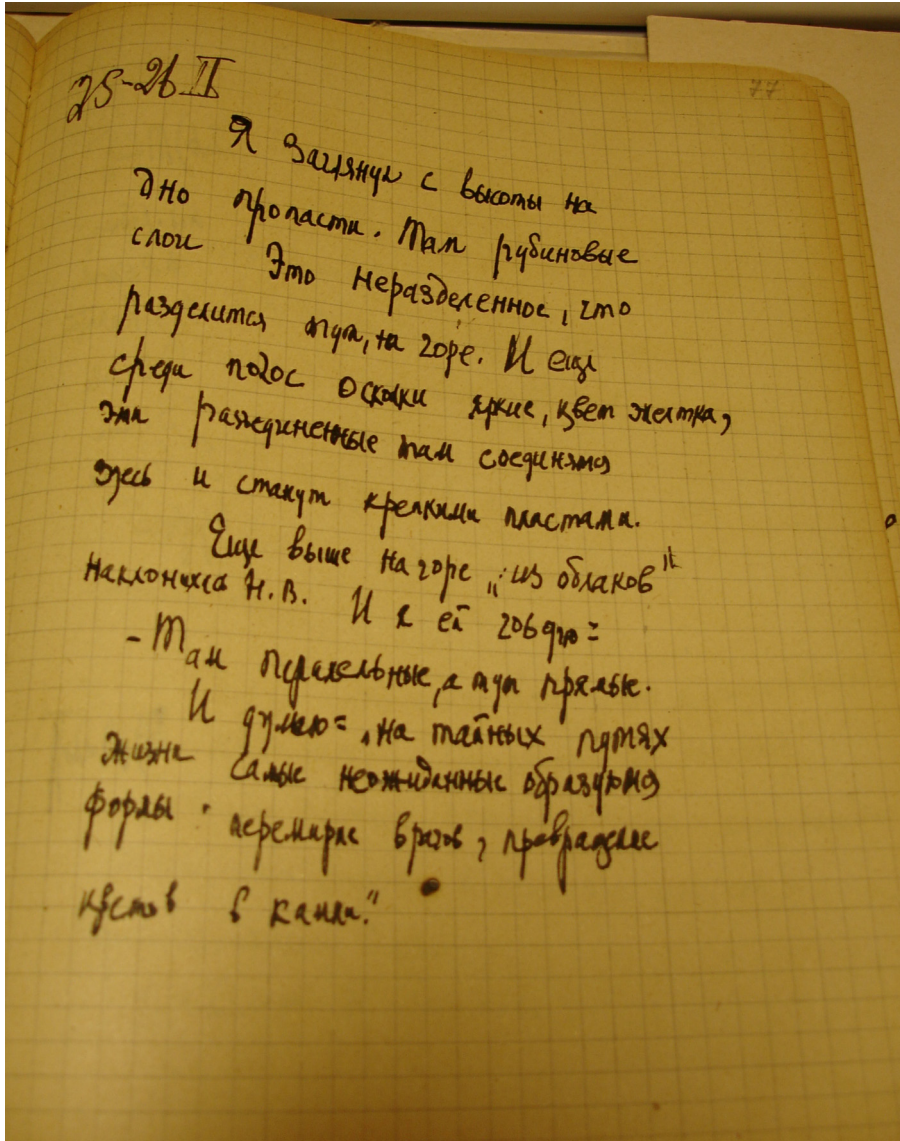 25-26 II
77
Я заглянул с высоты на
дно пропасти. Там рубиновые
слои Это неразделенное, что
разделится тут, на горе. И еще
среди полос осколки яркие, цвет желтка,
эти разъединенные там соединятся
здесь и станут крепкими пластами.
Еще выше на горе „из облаков"
наклонилса Н. В. И я ей говорю:
- Там паралельные, а тут прямые.
И думаю: „на тайных путях
жизни самые неожиданные образуются
формы: перемирие врагов, превращение
цветов в камни."